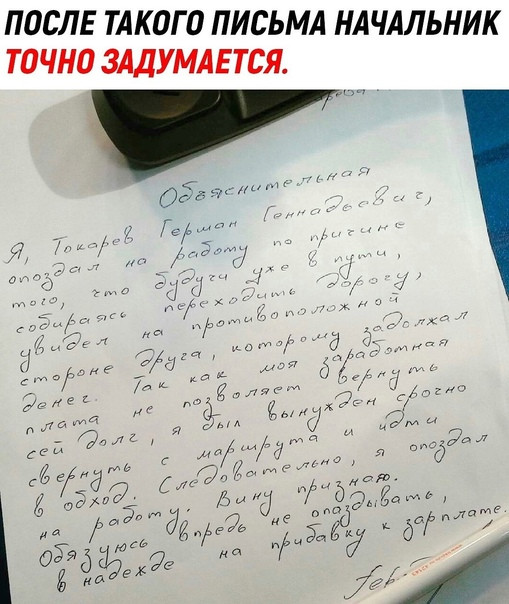 ПОСЛЕ ТАКОГО ПИСЬМА НАЧАЛЬНИК
ТОЧНО ЗАДУМАЕТСЯ.
Объяснительная
Я, Токарев Герман Геннадьевич,
опоздал на работу по причине
того, что будучи уже в пути,
собираясь переходить дорогу,
увидел на противоположной
стороне друга, которому задолжал
денег. Так как моя заработная
плата не позволяет вернуть
сей долг, я был вынужден срочно
свернуть с маршрута и идти
в обход. Следовательно, я опоздал
на работу. Вину признаю.
Обязуюсь впредь не опаздывать,
в надежде на прибавку к зарплате.